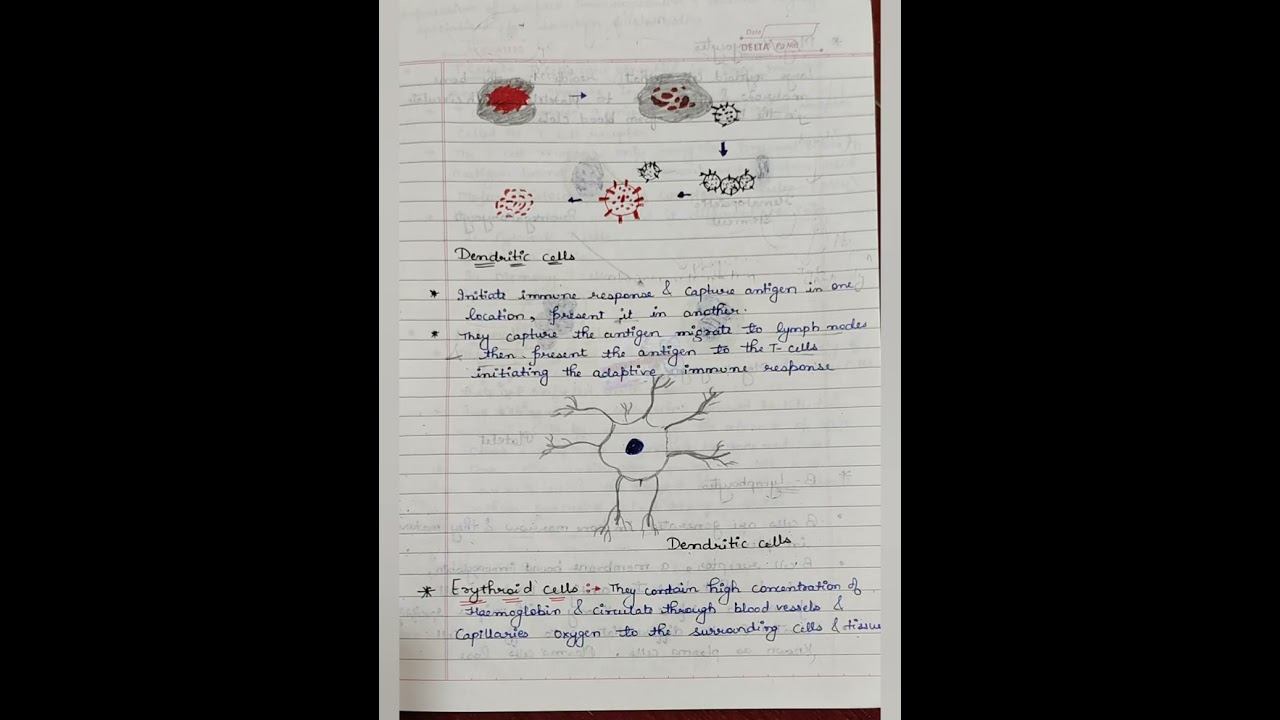 Date
DELTA Pg No
Dendritic cells
* Initiate immune response & capture antigen in one
location, present it in another.
* They capture the antigen migrate to lymph nodes
then present the antigen to the T-cells
initiating the adaptive immune response
Dendritic cells
* Erythroid cells :→ They contain high concentration of
Haemoglobin & circulate through blood vessels &
Capillaries oxygen to the surrounding cells & tissue